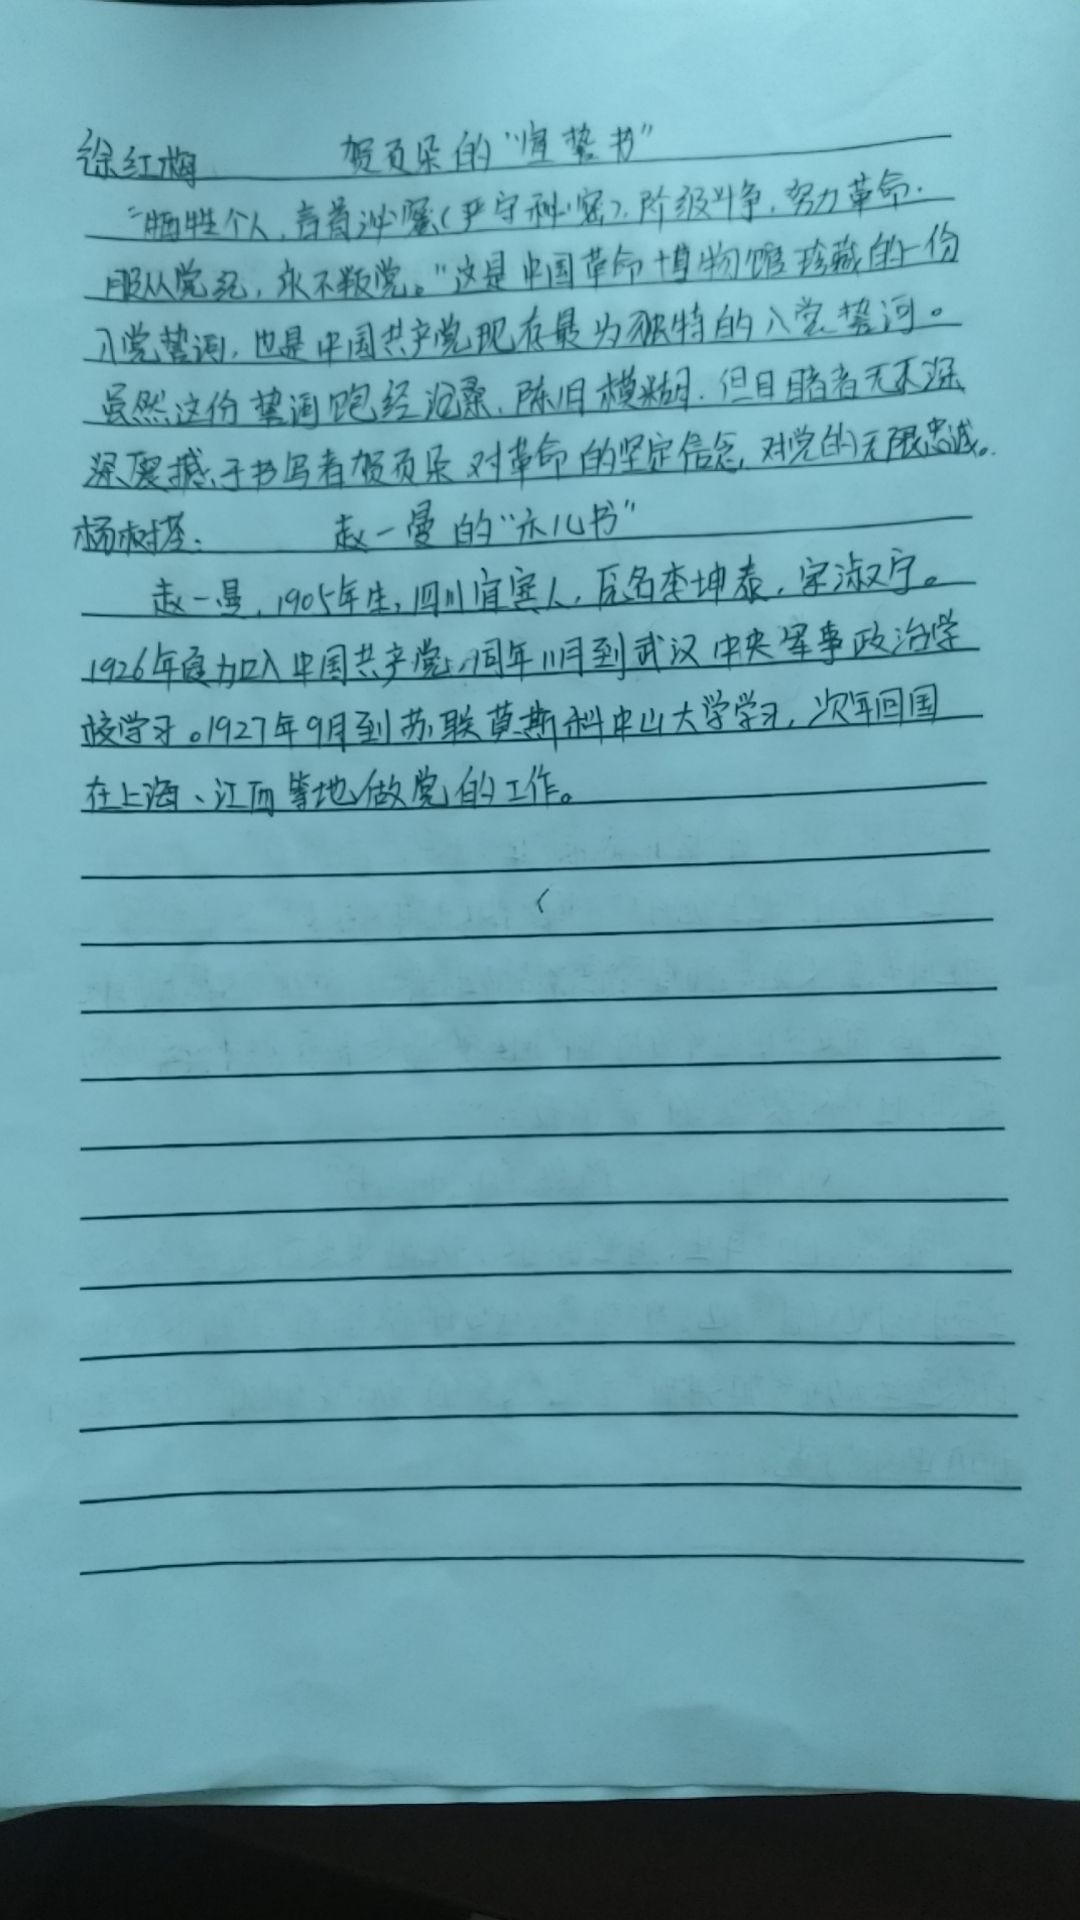 徐红梅 贺页朵的“宣誓书”
“牺牲个人，言首泌密（严守秘密），阶级斗争，努力革命，
服从党纪，永不叛党。”这是中国革命博物馆珍藏的一份
入党誓词，也是中国共产党现存最为独特的入党誓词。
虽然这份誓词饱经沧桑，陈旧模糊，但目睹者无不深
深震撼于书写者贺页朵对革命的坚定信念，对党的无限忠诚。
杨树塔： 赵一曼的“示儿书”
赵一曼，1905年生，四川宜宾人，原名李坤泰，字淑宁。
1926年夏加入中国共产党，同年11月到武汉中央军事政治学
校学习。1927年9月到苏联莫斯科中山大学学习，次年回国
在上海、江西等地做党的工作。